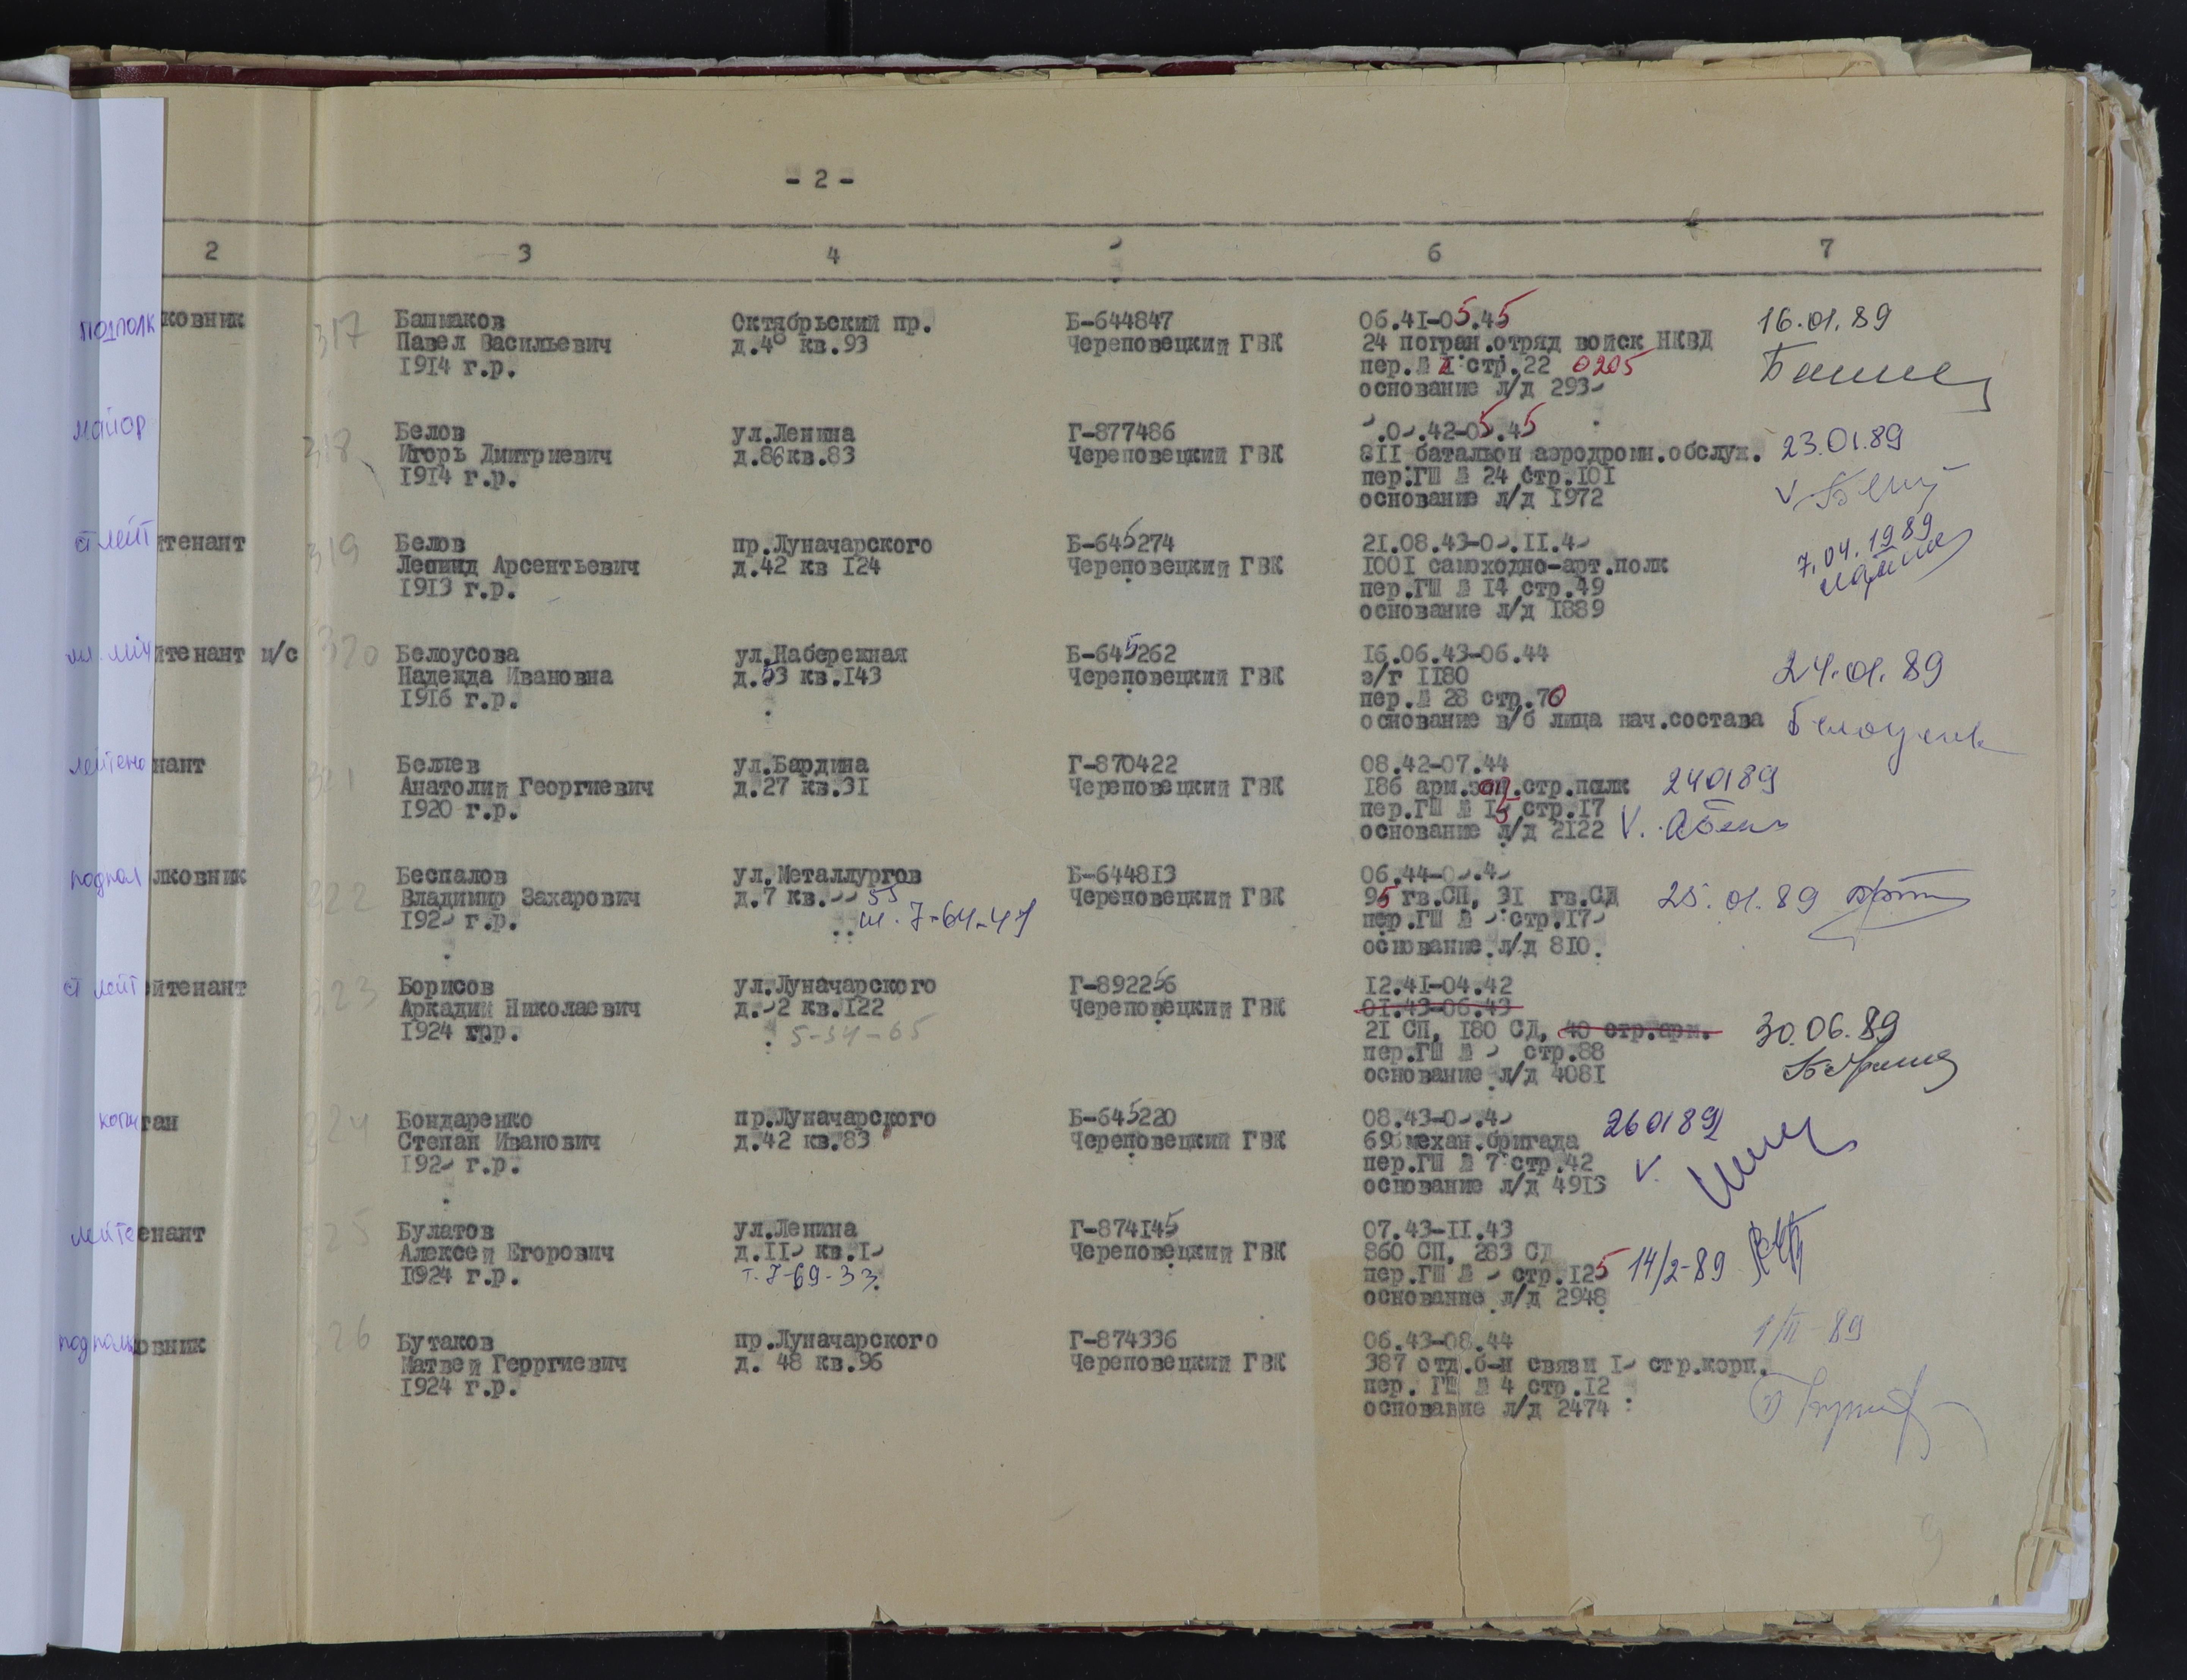 - 2 -
2 3 4 6 7
подполковник 317 Башмаков Октябрьский пр. Б-644847 06.41-05.45 16.01.89
Павел Васильевич д.4 кв.93 Череповецкий ГВК 24 погран.отряд войск НКВД
1914 г.р. пер.№ стр.22 0205
основание л/д 293
майор 318 Белов ул.Ленина Г-877486 .42-05.45
Игорь Дмитриевич д.86кв.83 Череповецкий ГВК 811 батальон аэродромн.обслуж. 23.01.89
1914 г.р. пер.ГШ № 24 стр.101
основание л/д 1972
ст лейтенант 319 Белов пр.Луначарского Б-645274 21.08.43- 7.04.1989
Леонид Арсентьевич д.42 кв 124 Череповецкий ГВК 1001 самоходно-арт.полк
1913 г.р. пер.ГШ № 14 стр.49
основание л/д 1889
мл. лейтенант м/с 320 Белоусова ул.Набережная Б-645262 16.06.43-06.44
Надежда Ивановна д.53 кв.143 Череповецкий ГВК э/г 1180 24.01.89
1916 г.р. пер.№ 28 стр.70
основание в/б лица нач.состава
лейтенант 321 Беляев ул.Бардина Г-870422 08.42-07.44
Анатолий Георгиевич д.27 кв.31 Череповецкий ГВК 186 арм.зап.стр.полк 240189
1920 г.р. пер.ГШ № 15 стр.17
основание л/д 2122 V.
подполковник 322 Беспалов ул.Металлургов Б-644813 06.44-
Владимир Захарович д.7 кв. 55 Череповецкий ГВК 95 гв.СП, 31 гв.СД 25.01.89
192 г.р. 7-64-41 пер.ГШ № стр.17
основание л/д 810
ст лейтенант 323 Борисов ул.Луначарского Г-892256 12.41-04.42
Аркадий Николаевич д. 2 кв.122 Череповецкий ГВК 01.43-06.43
1924 г.р. 5-54-65 21 СП, 180 СД, 40 стр.арм. 30.06.89
пер.ГШ № стр.88
основание л/д 4081
капитан 324 Бондаренко пр.Луначарского Б-645220 08.43-
Степан Иванович д.42 кв.83 Череповецкий ГВК 69 механ.бригада 260189
192 г.р. пер.ГШ № 7 стр.42 V.
основание л/д 4913
лейтенант 325 Булатов ул.Ленина Г-874145 07.43-11.43
Алексей Егорович д.11 кв.1 Череповецкий ГВК 860 СП, 283 СД
1924 г.р. т.7-69-33 пер.ГШ № стр.125 14/2-89
основание л/д 2948
подполковник 326 Бутаков пр.Луначарского Г-874336 06.43-08.44 1/II-89
Матвей Герргиевич д. 48 кв.96 Череповецкий ГВК 387 отд.б-н связи 1 стр.корп.
1924 г.р. пер. ГШ № 4 стр.12
основание л/д 2474